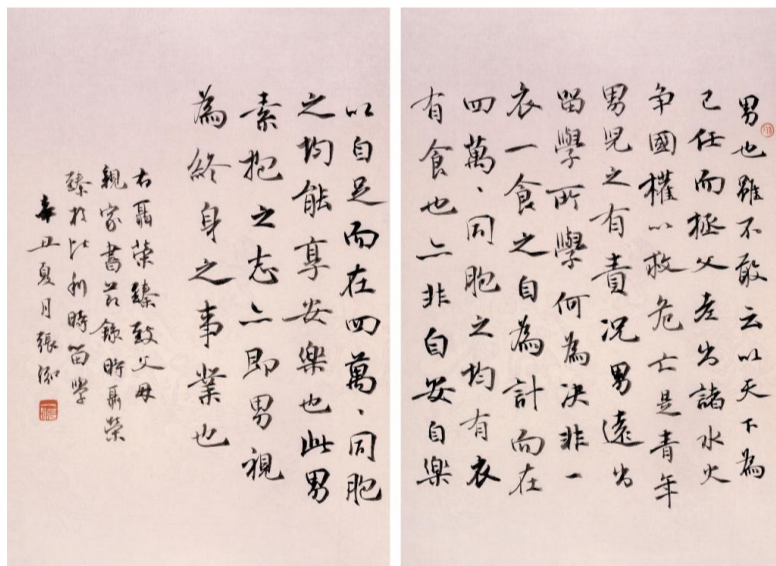 男也雖不敢云以天下為
己任而拯父老出諸水火
争國權以救危亡是青年
男兒之有責況男遠出
留學所學何為决非一
衣一食之自為計而在
四萬、同胞之均有衣
有食也亦非自安自樂
以自足而在四萬、同胞
之均能享安樂也此男
素抱之志亦即男視
為終身之事業也
右聶榮臻致父母
親家書节錄時聶榮
臻於比利時留學
辛丑夏月張